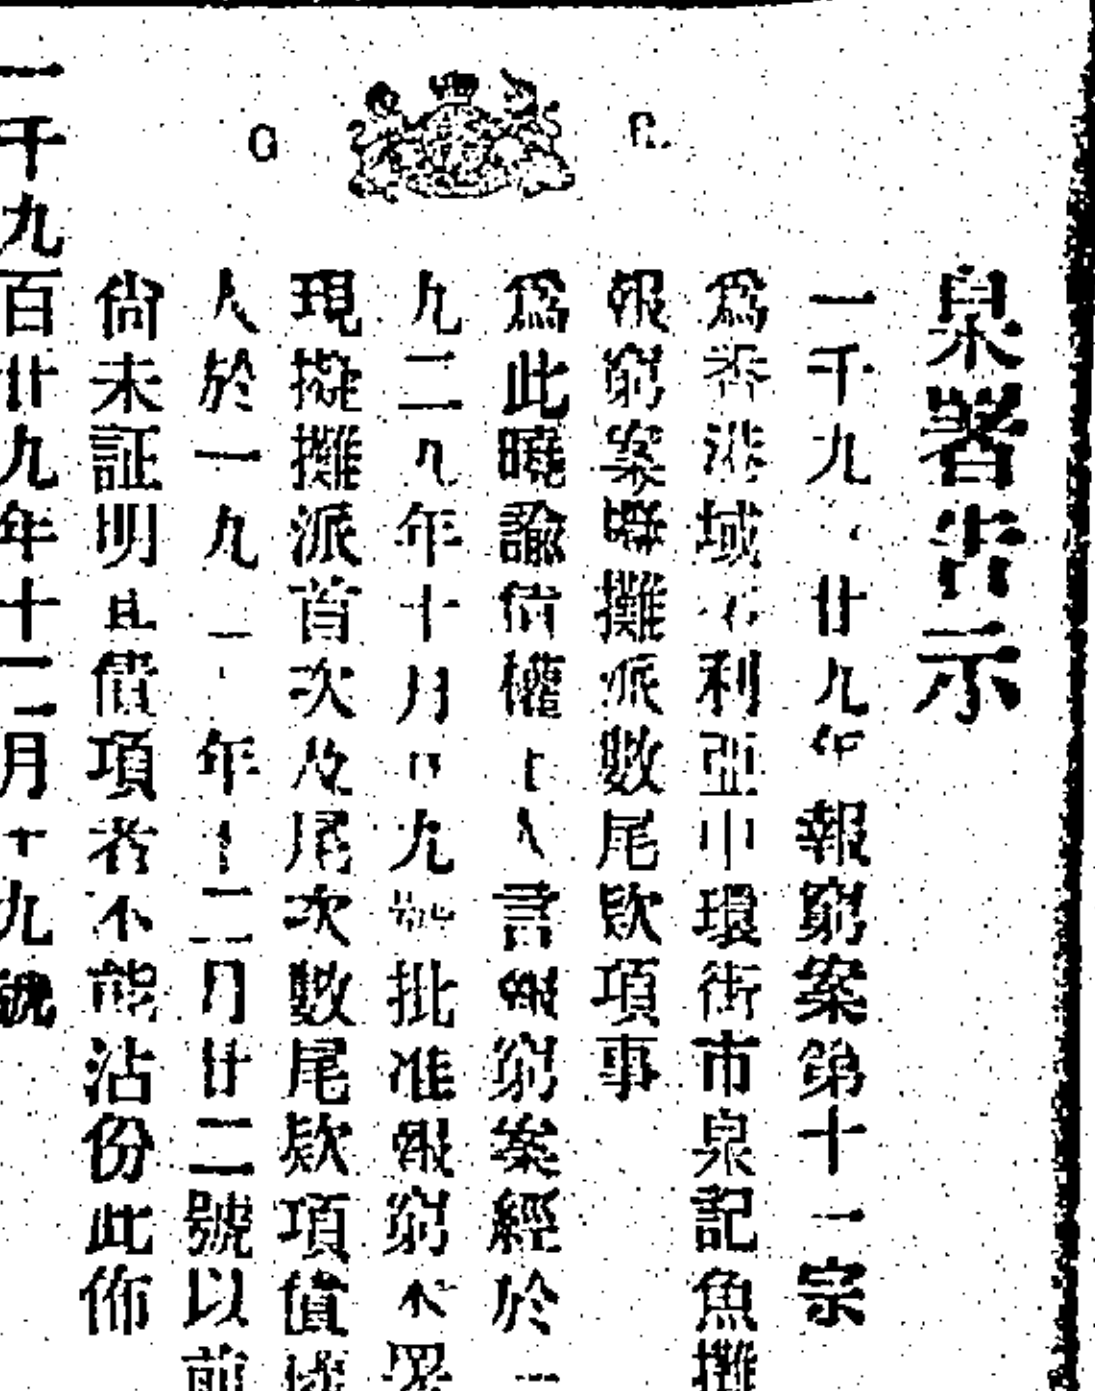 G R
臬署告示
一千九 廿九年報窮案第十一宗
爲香港域 利亞中環街市泉記魚攤
報窮案 攤派數尾欵項事
爲此曉諭債權 人 言報窮案經於一
九二九年十月 九號批准報窮 署
現擬攤派首次及尾次數尾欵項債權
人於一九二 年十二月廿二號以前
尙未証明其債項者不能沾份此佈
一千九百廿九年十二月十九號